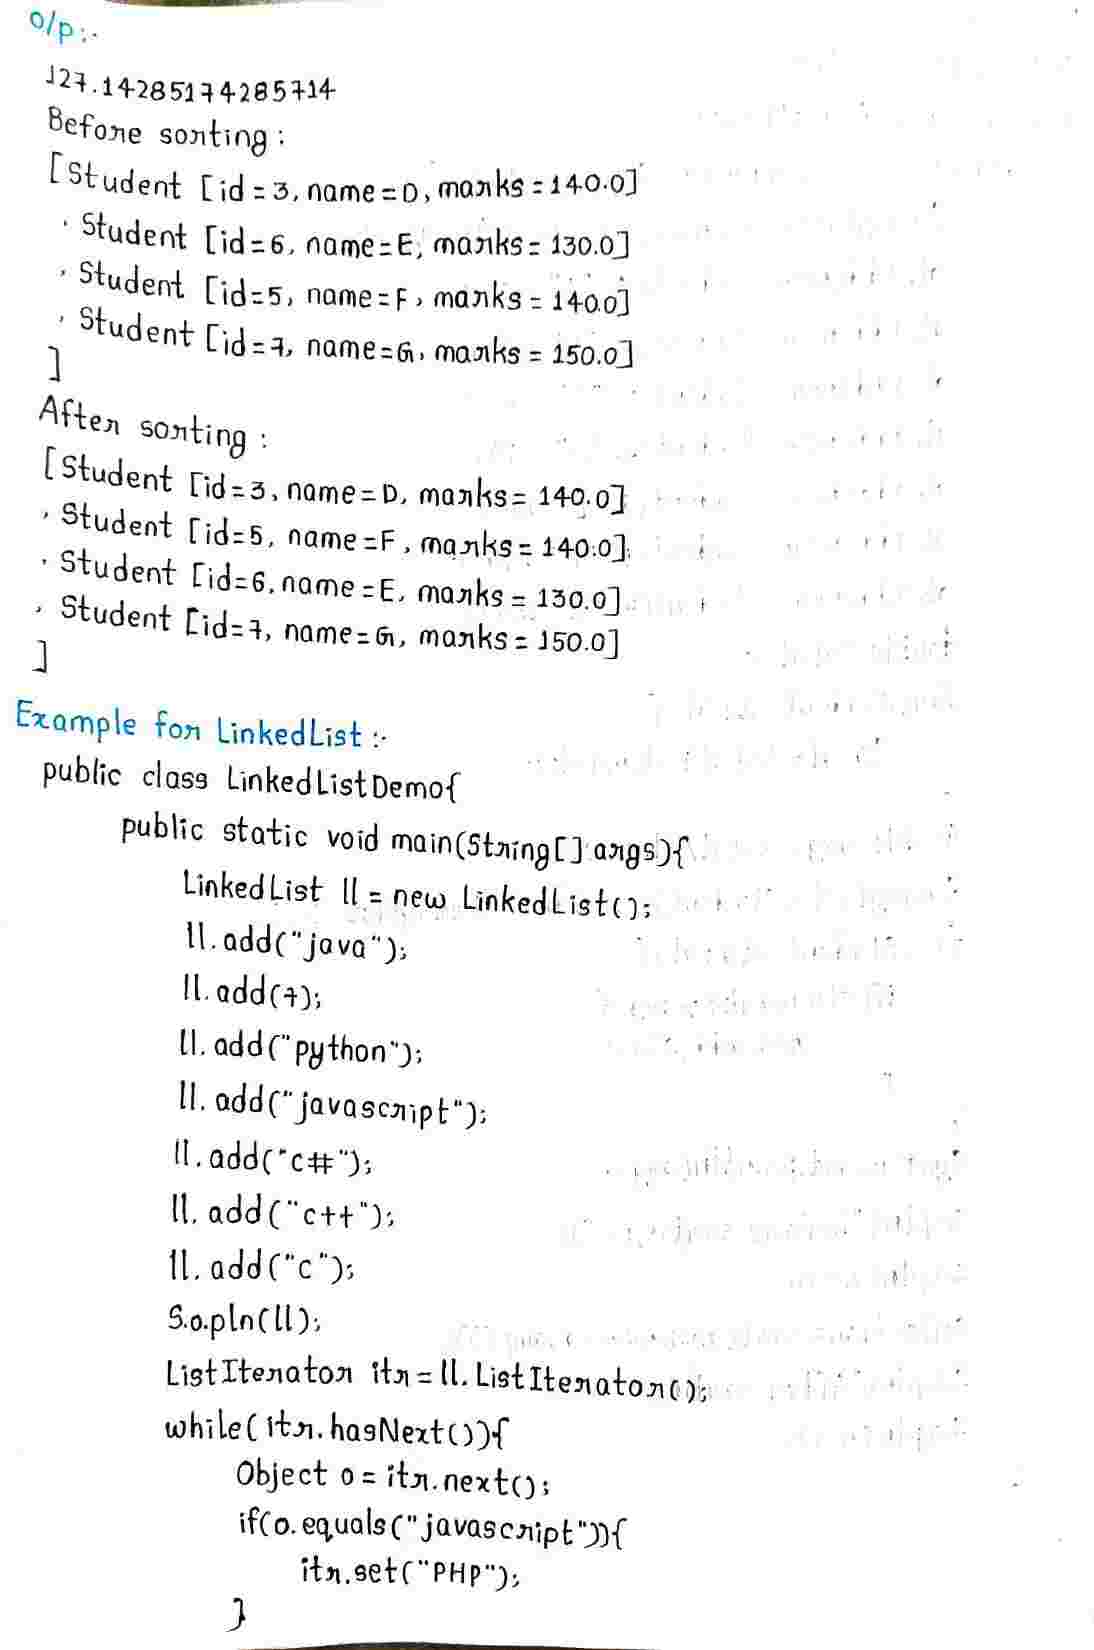 o/p:-
127.14285174285714
Before sorting :
[Student [id = 3, name = D, marks = 140.0]
, Student [id=6, name=E, marks = 130.0]
, Student [id=5, name = F, marks = 140.0]
, Student [id=7, name=G, marks = 150.0]
]
After sorting :
[Student [id=3, name=D, marks = 140.0]
, Student [id=5, name=F, marks = 140.0]
, Student [id=6, name=E, marks = 130.0]
, Student [id=7, name=G, marks = 150.0]
]
Example for LinkedList :-
public class LinkedListDemo{
public static void main(String[] args){
LinkedList ll = new LinkedList();
ll.add("java");
ll.add(7);
ll.add("python");
ll.add("javascript");
ll.add("c#");
ll.add("c++");
ll.add("c");
S.o.pln(ll);
ListIterator itr = ll.ListIterator();
while(itr.hasNext()){
Object o = itr.next();
if(o.equals("javascript")){
itr.set("PHP");
}